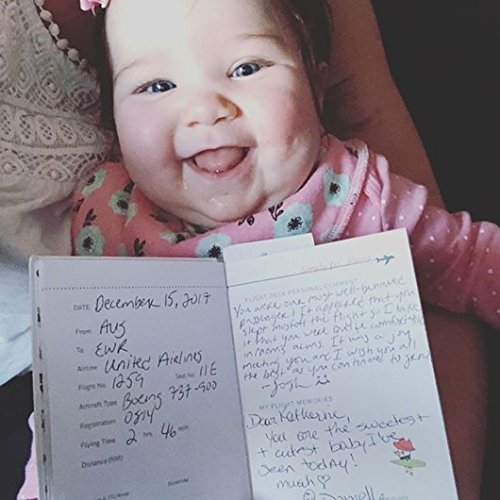 DATE: December 15, 2017
From AUS
To EWR
Airline United Airlines
Flight No. 1259 Seat No. 11E
Aircraft Type Boeing 737-900
Registration 0814
Flying Time 2 hrs 46 min
Distance (NM)
FLIGHT DECK PERSONAL COMMENT
You were one most well-behaved
passenger! It appeared that you
slept most of the flight so I take
it that you were quite comfortable
in mom's arms. It was a joy
meeting you and I wish you all
the best as you continue to grow
Josh
MY FLIGHT MEMORIES
Dear Katherine,
You are the sweetest
+ cutest baby I've
seen today!
much
Danielle